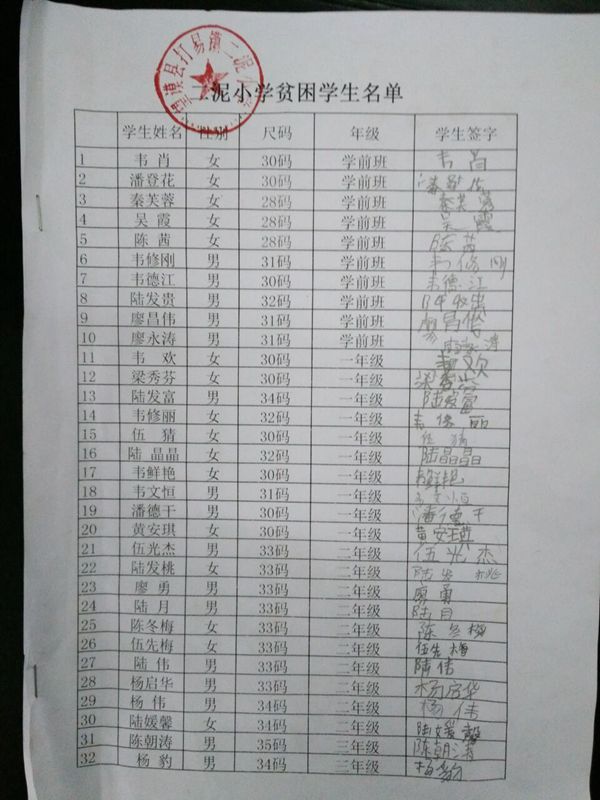 望谟县打易镇二泥小学
二泥小学贫困学生名单
学生姓名 性别 尺码 年级 学生签字
1 韦 肖 女 30码 学前班 韦 肖
2 潘登花 女 30码 学前班 潘登花
3 秦芙蓉 女 28码 学前班 秦芙蓉
4 吴 霞 女 28码 学前班 吴 霞
5 陈 茜 女 28码 学前班 陈 茜
6 韦修刚 男 31码 学前班 韦修刚
7 韦德江 男 30码 学前班 韦德江
8 陆发贵 男 32码 学前班
9 廖昌伟 男 31码 学前班 廖昌伟
10 廖永涛 男 31码 学前班
11 韦 欢 女 30码 一年级 韦欢
12 梁秀芬 女 30码 一年级 梁秀芬
13 陆发富 男 34码 一年级 陆发富
14 韦修丽 女 32码 一年级 韦修丽
15 伍 猜 女 30码 一年级 伍 猜
16 陆 晶晶 女 32码 一年级 陆晶晶
17 韦鲜艳 女 30码 一年级 韦鲜艳
18 韦文恒 男 31码 一年级 韦文恒
19 潘德干 男 30码 一年级 潘德干
20 黄安琪 女 30码 一年级 黄安琪
21 伍光杰 男 33码 二年级 伍光杰
22 陆发桃 女 33码 二年级 陆发桃
23 廖 勇 男 33码 二年级 廖勇
24 陆 月 男 33码 二年级 陆月
25 陈冬梅 女 33码 二年级 陈冬梅
26 伍先梅 女 33码 二年级 伍先梅
27 陆 伟 男 33码 二年级 陆伟
28 杨启华 男 33码 二年级 杨启华
29 杨 伟 男 34码 二年级 杨 伟
30 陆媛馨 女 34码 二年级 陆媛馨
31 陈朝涛 男 35码 三年级 陈朝涛
32 杨 豹 男 34码 三年级 杨豹